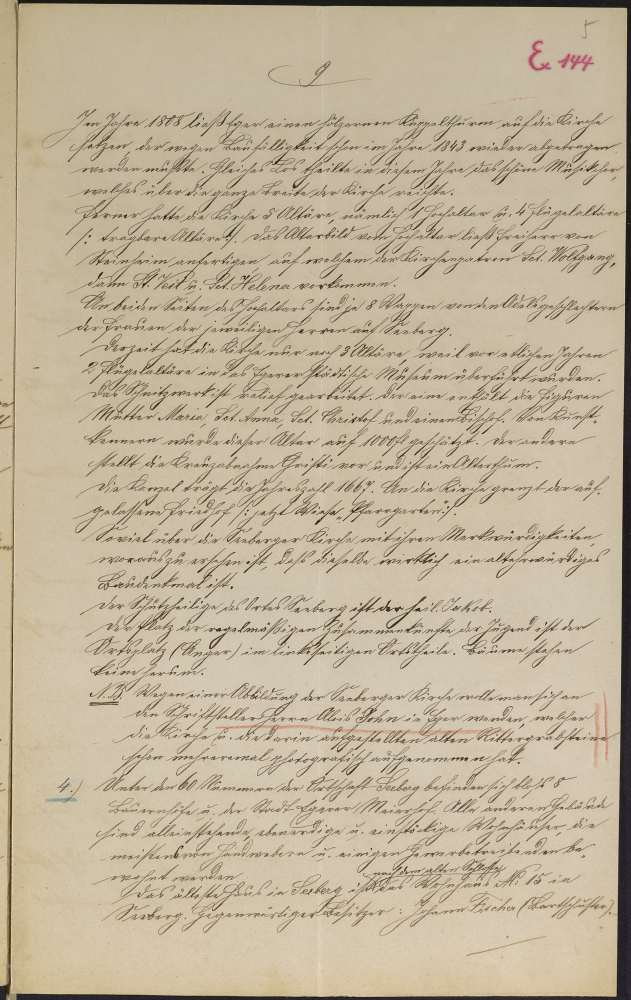 5
E. 144
9
Im Jahre 1808 ließ Eger einen hölzernen Kuppelthurm auf die Kirche
setzen, der wegen Baufälligkeit schon im Jahre 1843 wieder abgetragen
werden mußte. Gleiches Los theilte in diesem Jahre das schöne Musikchor
welches über die ganze Breite der Kirche reichte.
Ferner hatte die Kirche 5 Altäre, nämlich 1 Hochaltar u. 4 Flügelaltäre
/: tragbare Altäre :/. Das Altarbild vom Hochaltar ließ Freiherr von
Steinheim anfertigen, auf welchem der Kirchenpatron Sct. Wolfgang,
dann St. Veit u. Sct. Helena vorkommen.
An beiden Seiten des Hochaltars sind je 8 Wappen von den Adelsgeschlechtern
der Frauen der jeweiligen Herren auf Seeberg.
Derzeit hat die Kirche nur noch 3 Altäre, weil vor etlichen Jahren
2 Flügelaltäre in das Egerer städtische Museum überführt wurden.
Das Schnitzwerk ist relief gearbeitet. Der eine enthält die Figuren
Mutter Maria, Sct. Anna, Sct. Christof und einen Bischof. Von Kunst-
kennern wurde dieser Altar auf 1000 fl geschätzt. Der andere
stellt die Kreuzabnahme Christi vor und ist ein Alterthum.
Die Kanzel trägt die Jahreszahl 1667. An die Kirche grenzt der auf-
gelassene Friedhof /: jetzt Wiese „Pfarrgarten“ :/.
Soviel über die Seeberger Kirche mit ihren Merkwürdigkeiten,
woraus zu ersehen ist, daß dieselbe wirklich ein altehrwürdiges
Baudenkmal ist.
Der Schutzheilige des Ortes Seeberg ist der heil. Jakob.
Der Platz der regelmäßigen Zusammenkünfte der Jugend ist der
Ortsplatz (Anger) im linksseitigen Ortstheile. Bäume stehen
keine herum.
N.B. Wegen einer Abbildung der Seeberger Kirche wolle man sich an
den Schriftsteller Herrn Alois John in Eger wenden, welcher
die Kirche u. die darin aufgestellten alten Rittergrabsteine
schon mehreremal photografisch aufgenommen hat.
4.) Unter den 60 Nummern der Ortschaft Seeberg befinden sich bloß 8
Bauernhöfe u. der Stadt Egerer Meierhof. Alle anderen Gebäude
sind alleinstehende, ebenerdige u. einstöckige Wohnhäuser, die
meistens von Handwebern u. einigen Gewerbetreibenden be-
wohnt werden.
nach dem alten Schlosse
Das älteste Haus in Seeberg ist das Wohnhaus No. 15 in
Seeberg. Gegenwärtiger Besitzer: Johann Fischer